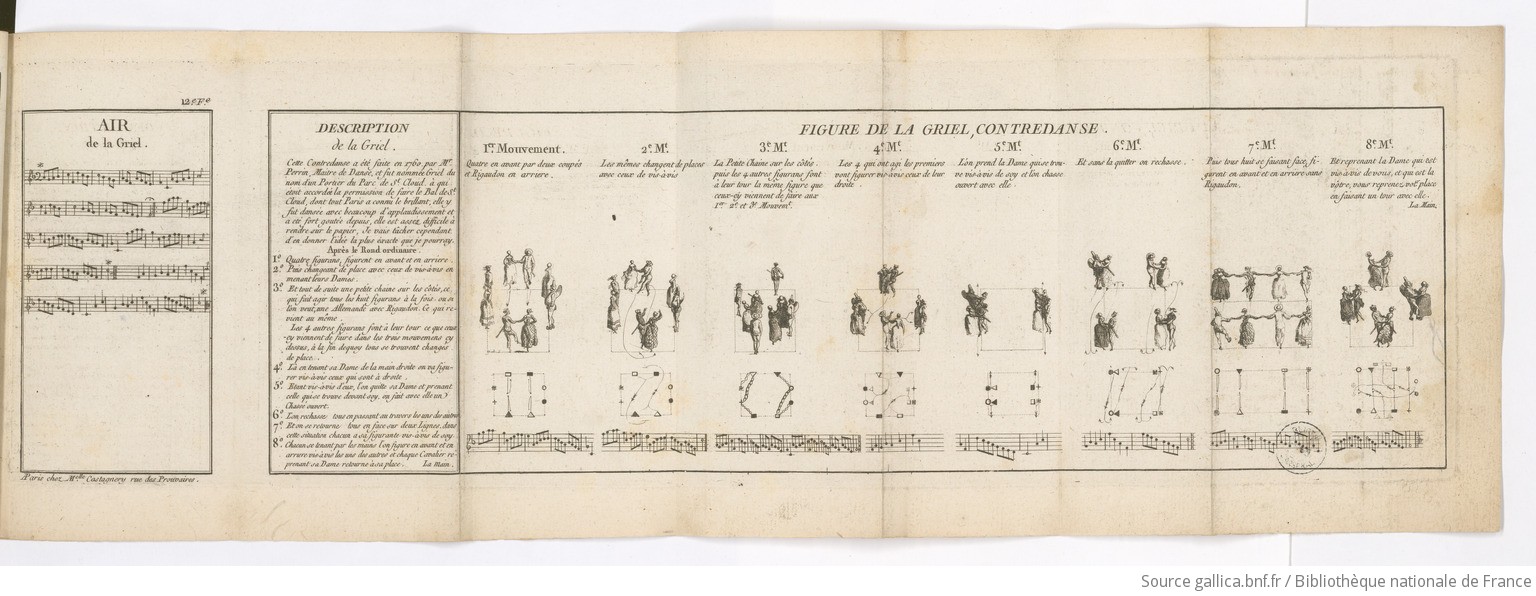 12.e F.e
AIR
de la Griel.
A Paris chez M.elle Castagnery rue des Prouvaires.
DESCRIPTION
de la Griel.
Cette Contredanse a été faite en 1760. par M.r
Perrin, Maitre de Danse, et fut nommée Griel du
nom d'un Portier du Parc de S.t Cloud. à qui
étoit accordée la permission de faire le Bal de S.t
Cloud, dont tout Paris a connu le brillant, elle y
fut dansée avec beaucoup d'applaudissement et
a été fort goutée depuis, elle est assez difficile à
rendre sur le papier, Je vais tâcher cependant
d'en donner l'idée la plus éxacte que je pourray.
Après le Rond ordinaire.
1.o Quatre figurans, figurent en avant et en arriere.
2.o Puis changeant de place avec ceux de vis-à-vis en
menant leurs Dames.
3.o Et tout de suite une petite chaine sur les côtés, ce,
qui fait agir tous les huit figurans à la fois. ou si
l'on veut, une Allemande avec Rigaudon. Ce qui re-
vient au même.
Les 4 autres figurans font à leur tour ce que ceux
-cy viennent de faire dans les trois mouvemens cy
dessus, à la fin dequoy tous se trouvent changés
de place.
4.o Là en tenant sa Dame de la main droite on va figu-
rer vis-à-vis ceux qui sont à droite.
5.o Etant vis-à-vis d'eux, l'on quitte sa Dame et prenant
celle qui se trouve devant soy, on fait avec elle un
Chassé ouvert.
6.o L'on rechasse tous en passant au travers les uns des autres
7.o Et on se retourne tous en face sur deux Lignes, dans
cette situation chacun a sa figurante vis-à-vis de soy.
8.o Chacun se tenant par les mains l'on figure en avant et en
arriere vis-à-vis les uns des autres et chaque Cavalier re-
prenant sa Dame retourne à sa place. La main.
FIGURE DE LA GRIEL, CONTREDANSE.
1.er Mouvement.
Quatre en avant par deux coupés
et Rigaudon en arriere.
2.e M.t
Les mêmes changent de places
avec ceux de vis-à-vis
3.e M.t
La Petite Chaine sur les côtés.
puis les 4 autres figurans font
à leur tour la même figure que
ceux-cy viennent de faire aux
1.er 2.e et 3.e Mouvem.t
4.e M.t
Les 4 qui ont agi les premiers
vont figurer vis-à-vis ceux de leur
droite.
5.e M.t
L'on prend la Dame qui se trou-
ve vis-à-vis de soy et l'on chasse
ouvert avec elle.
6.e M.t
Et sans la quitter on rechasse.
7.e M.t
Puis tous huit se faisant face, fi-
gurent en avant et en arriere sans
Rigaudon.
8.e M.t
Et reprenant la Dame qui est
vis-à-vis de vous, et qui est la
vôtre, vous reprenez vot.re place
en faisant un tour avec elle.
La Main,
Source gallica.bnf.fr / Bibliothèque nationale de France